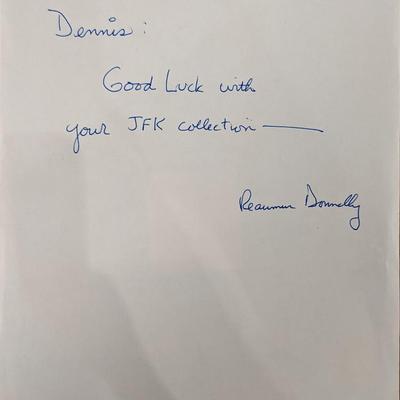 Dennis:
Good Luck with
your JFK collection —
Reaumur Donnally